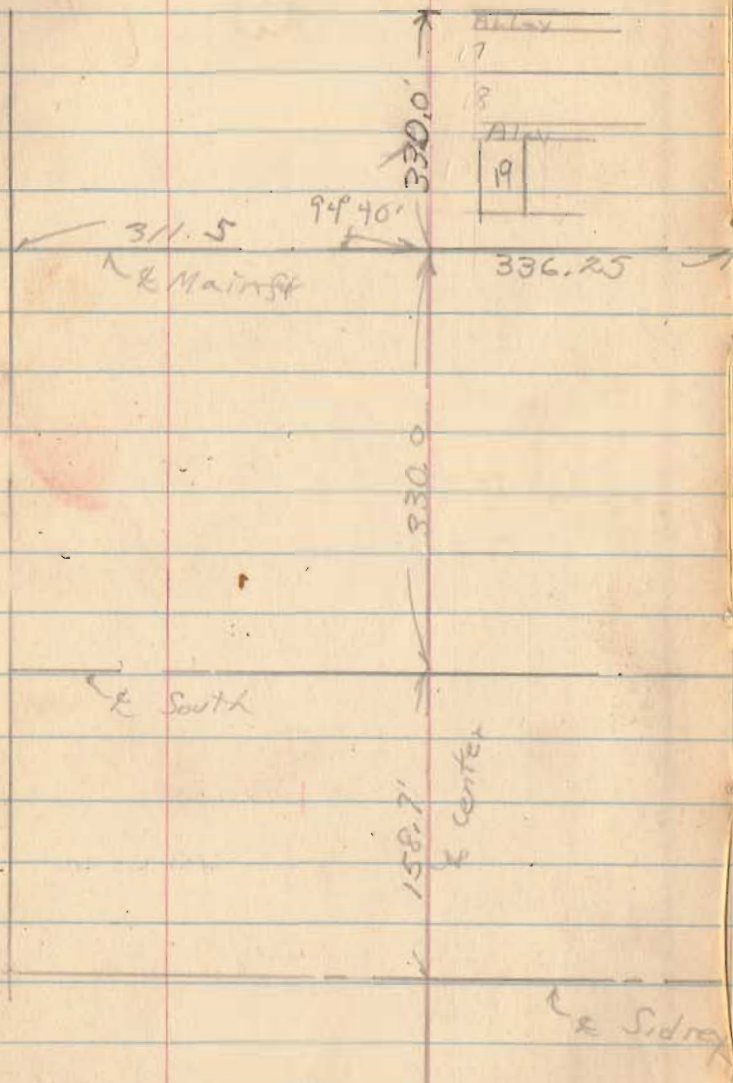 Alley
17
330.0'
18
Alley
19
94° 40'
311.5
336.25
℄ Main St
330.0
℄ South
158.7'
℄ Center
℄ Sidney